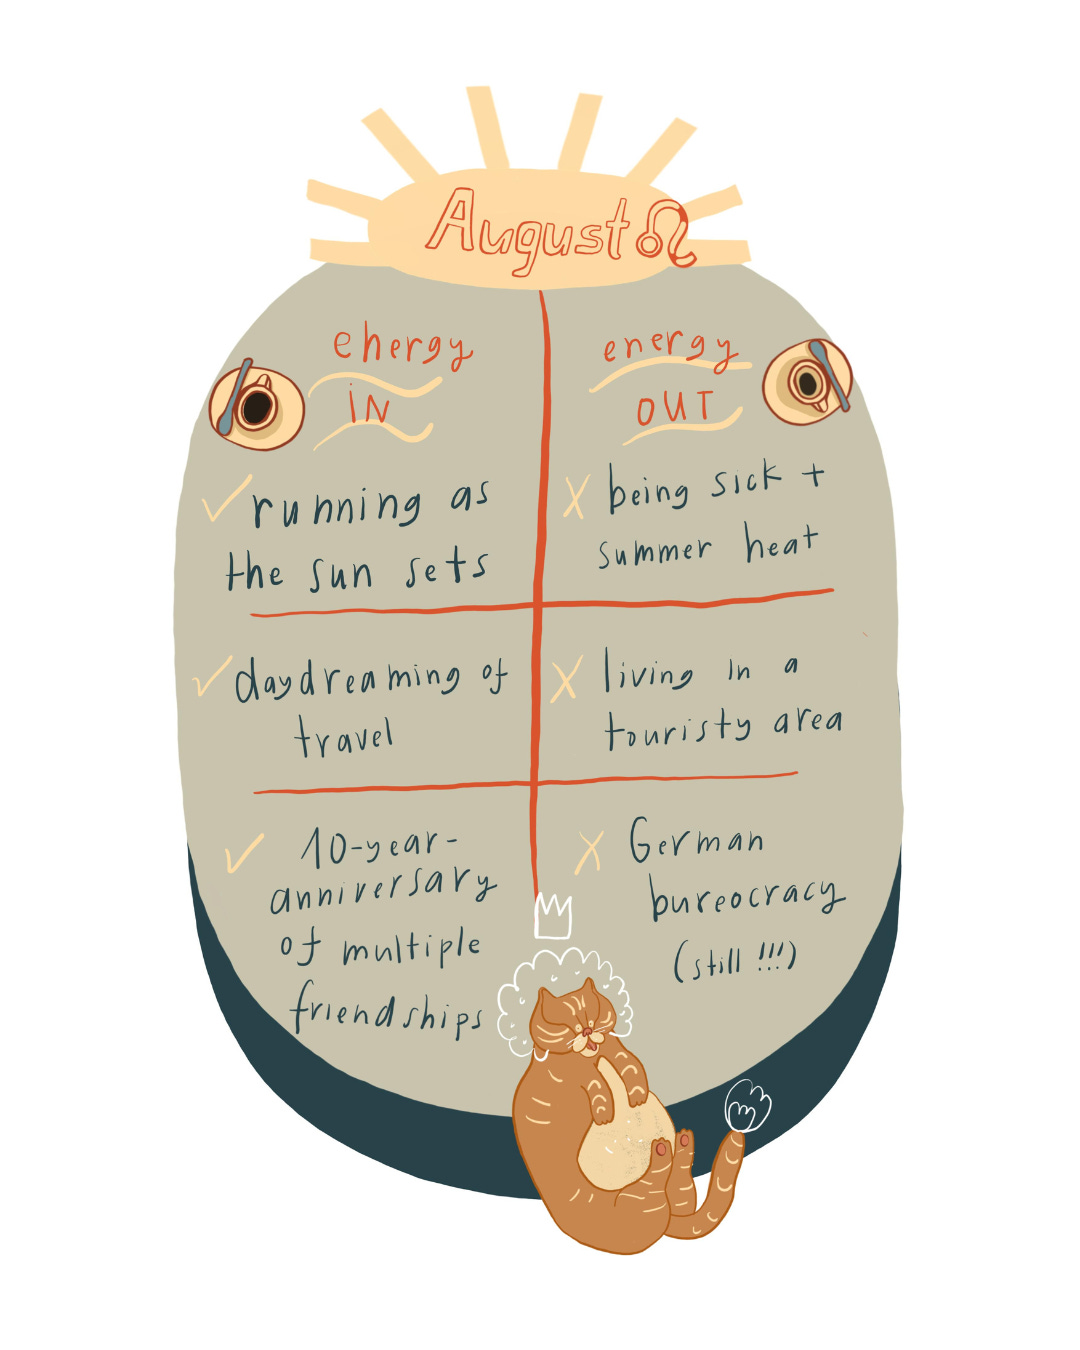 August ♌
energy
IN
running as
the sun sets
daydreaming of
travel
10-year-
anniversary
of multiple
friendships
energy
OUT
being sick +
summer heat
living in a
touristy area
German
bureocracy
(still !!!)